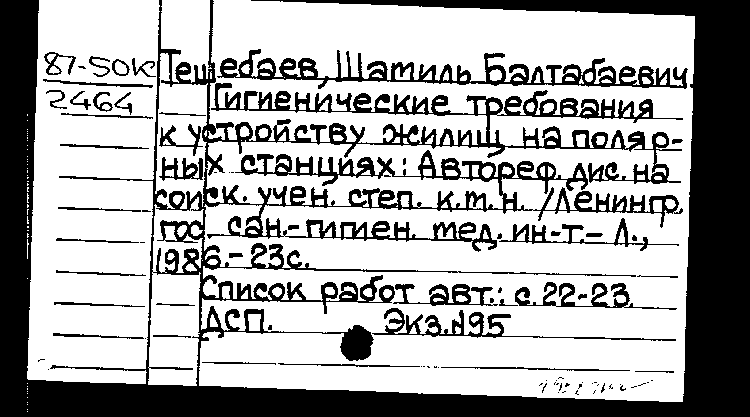 87-50К Тешебаев, Шатиль Балтабаевич.
2464 Гигиенические требования
к устройству жилищ на поляр-
ных станциях: Автореф. дис. на
соиск. учен. степ. к.т.н. /Ленингр.
гос. сан.-гигиен. мед. ин-т.- Л.,
1986.- 23с.
Список работ авт.: с.22-23.
ДСП. Экз.№95